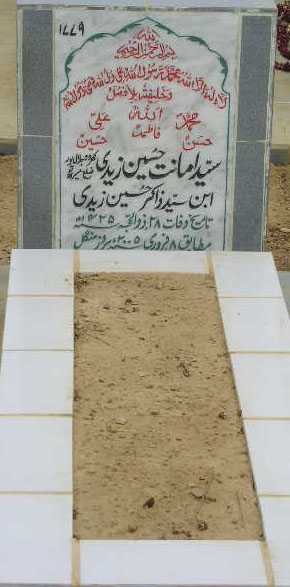 ۱۷۷۹
بسم اللہ الرحمن الرحیم
لا الہ الا اللہ محمد رسول اللہ علی ولی اللہ وصی رسول اللہ
وخلیفتہ بلا فصل
محمد اللہ علی
حسن فاطمہ حسین
سید امانت حسین زیدی
ابن سید ذاکر حسین زیدی
تاریخ وفات ۲۸ ذوالحجہ ۱۴۲۵ھ
مطابق ۸ فروری ۲۰۰۵ء بروز منگل